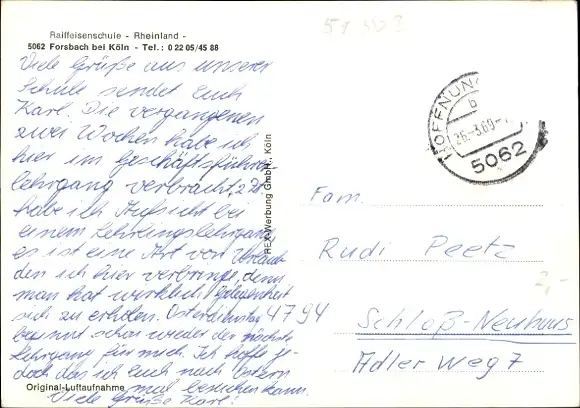 Raiffeisenschule - Rheinland -
5062 Forsbach bei Köln - Tel.: 0 22 05/45 88
Viele Grüße aus unserer
Schule sendet Euch
Karl. Die vergangenen
zwei Wochen habe ich
hier im Geschäftsführer
lehrgang verbracht, z.Zt.
habe ich Aufsicht bei
einem Lehrlingslehrgang
es ist eine Art von Urlaub
den ich hier verbringe, denn
man hat wirklich Gelegenheit
sich zu erholen. Osterdienstag
beginnt schon wieder der nächste
Lehrgang für mich. Ich hoffe je-
doch das ich Euch nach Ostern
mal besuchen kann.
Viele Grüße Karl!
Original-Luftaufnahme
REX-Werbung GmbH., Köln
HOFFNUN
b
5062
Fam.
Rudi Peetz
4794
Schloß-Neuhaus
Adler Weg 7
2,-